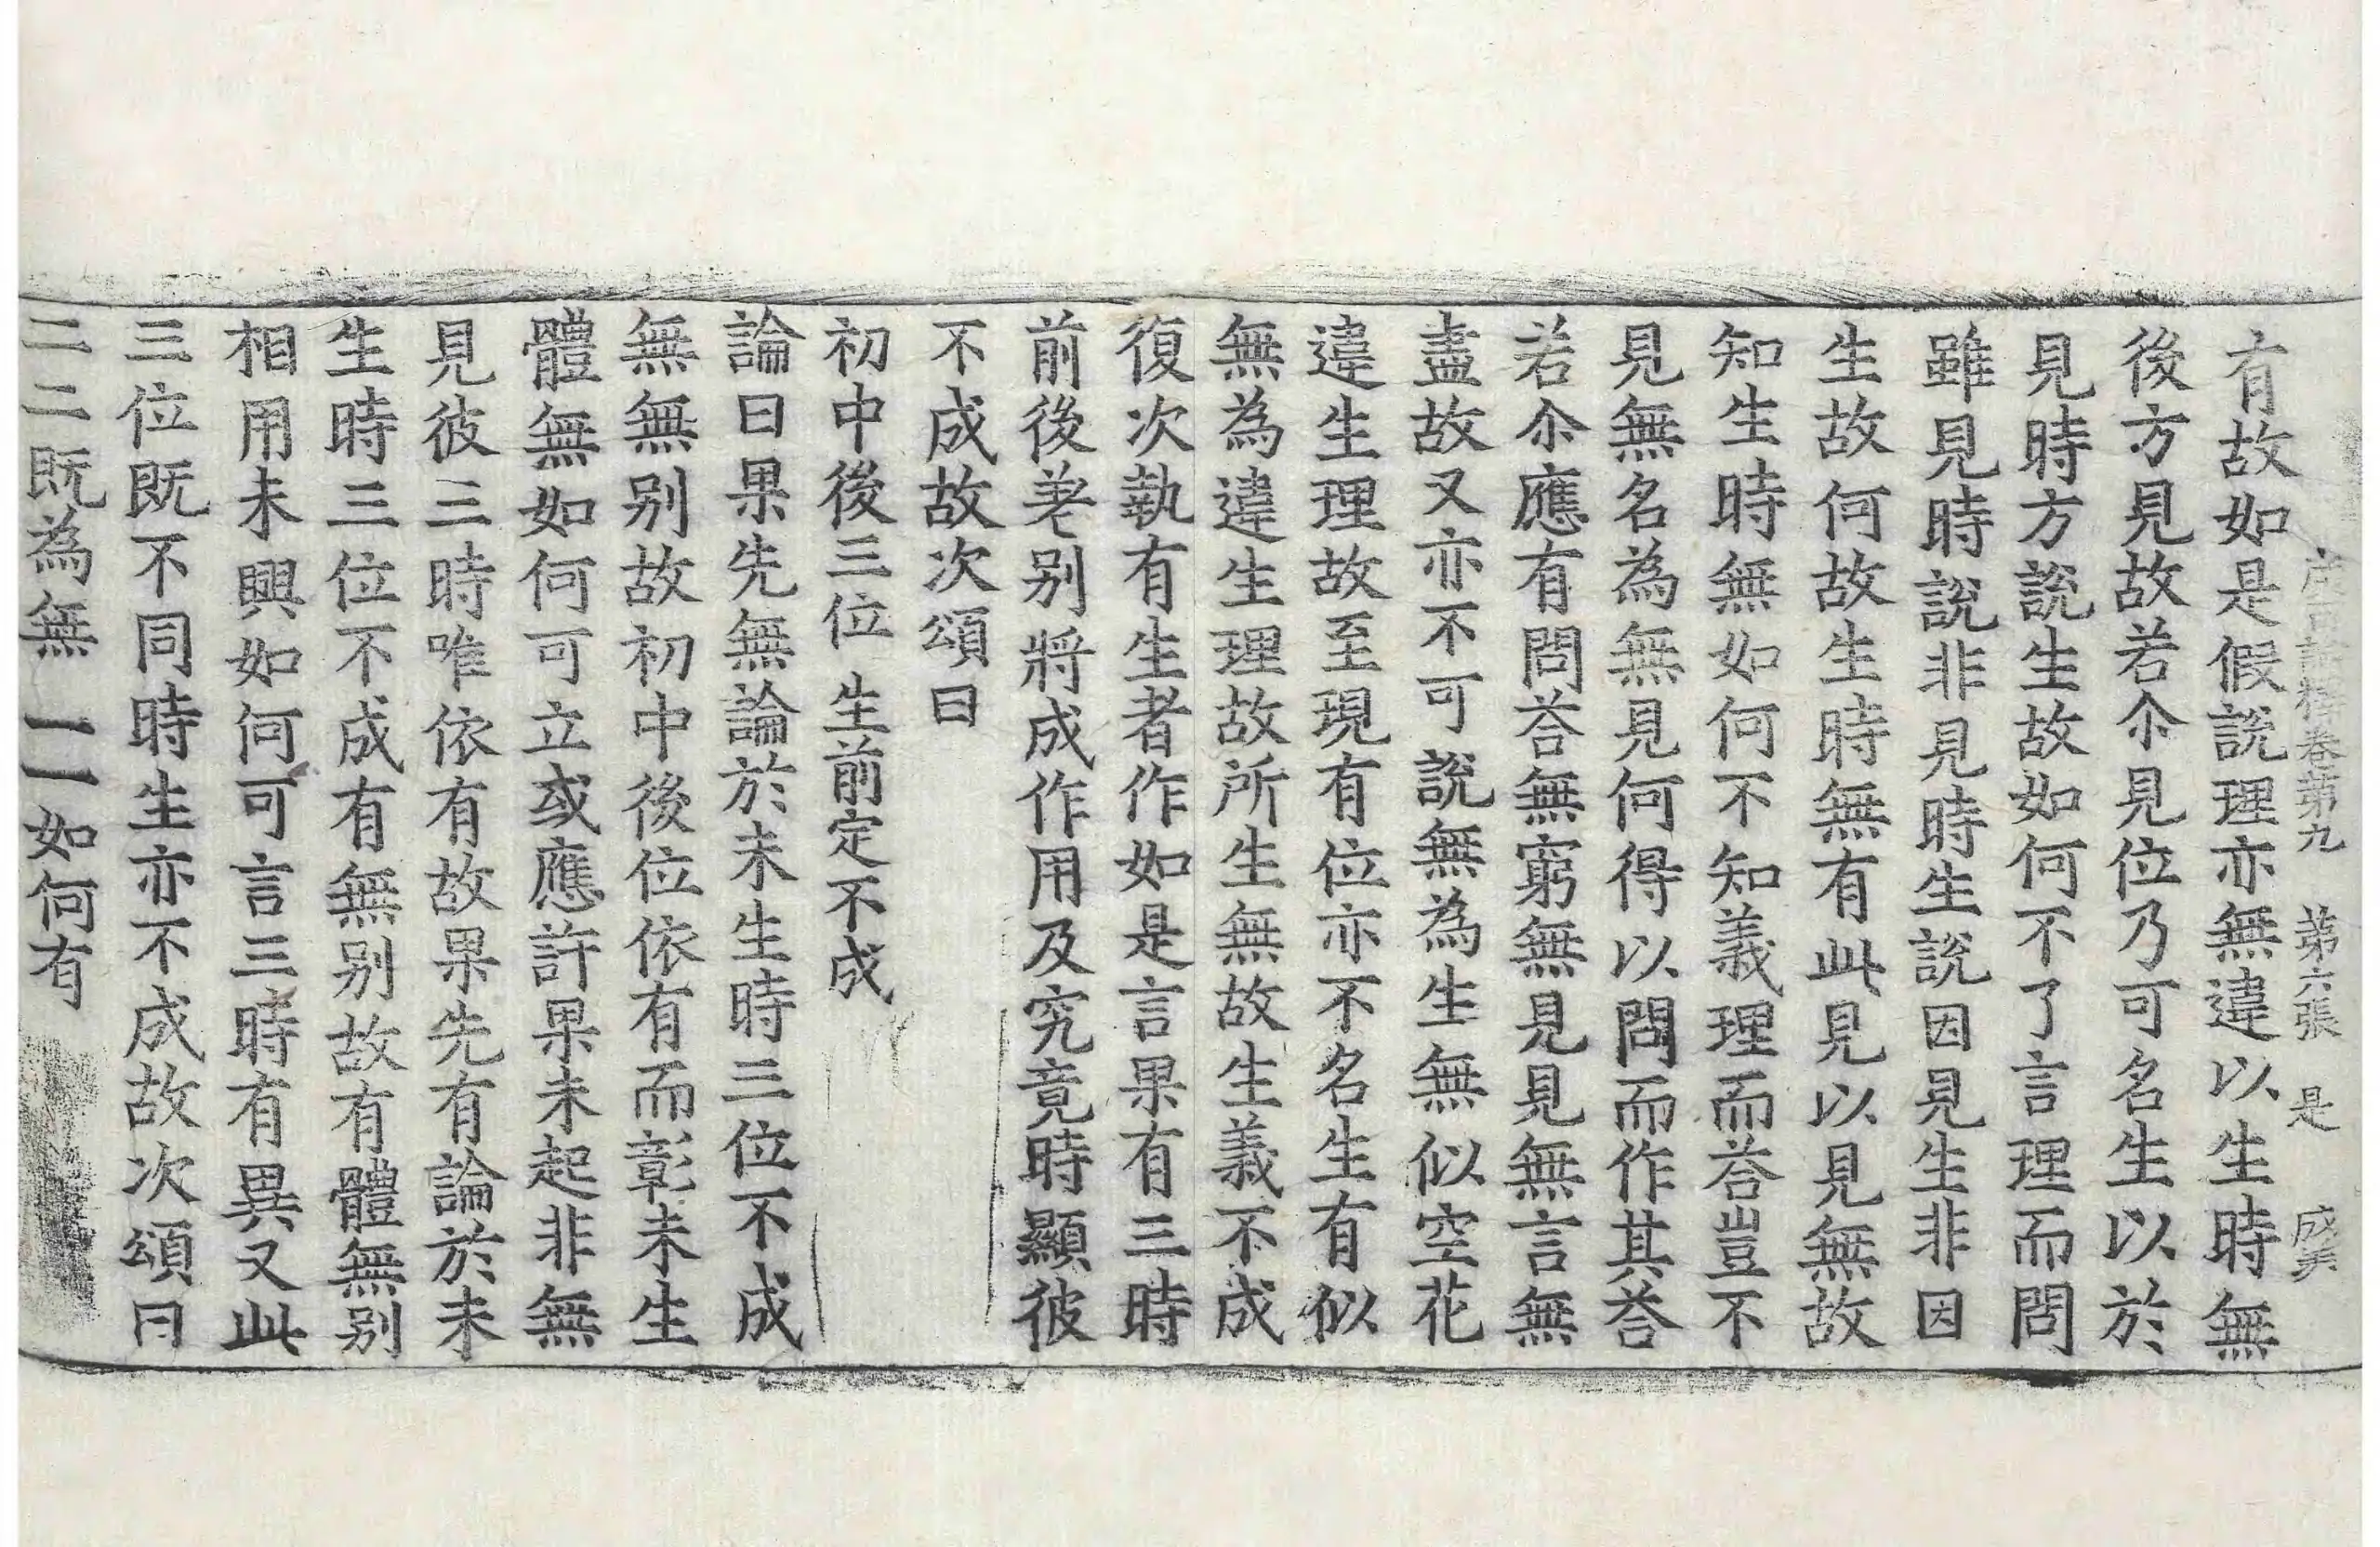 卷第九 第六張 是
有故如是假說理亦無違以生時無
後方見故若尒見位乃可名生以於
見時方說生故如何不了言理而問
雖見時說非見時生說因見生非因
生故何故生時無有此見以見無故
知生時無如何不知義理而荅豈不
見無名為無見何得以問而作其荅
若尒應有問荅無窮無見見無言無
盡故又亦不可說無為生無似空花
違生理故至現有位亦不名生有似
無為違生理故所生無故生義不成
復次執有生者作如是言果有三時
前後差别將成作用及究竟時顯彼
不成故次頌曰
初中後三位 生前定不成
論曰果先無論於未生時三位不成
無無别故初中後位依有而彰未生
體無如何可立或應許果未起非無
見彼三時唯依有故果先有論於未
生時三位不成有無别故有體無别
相用未興如何可言三時有異又此
三位既不同時生亦不成故次頌曰
二二既為無 一一如何有